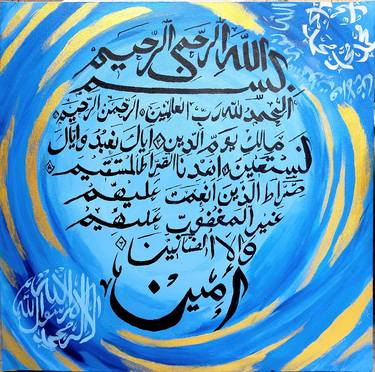 بسم الله الرحمن الرحيم
الحمد لله رب العالمين الرحمن الرحيم
مالك يوم الدين اياك نعبد واياك
نستعين اهدنا الصراط المستقيم
صراط الذين انعمت عليهم
غير المغضوب عليهم
ولا الضالين
امين